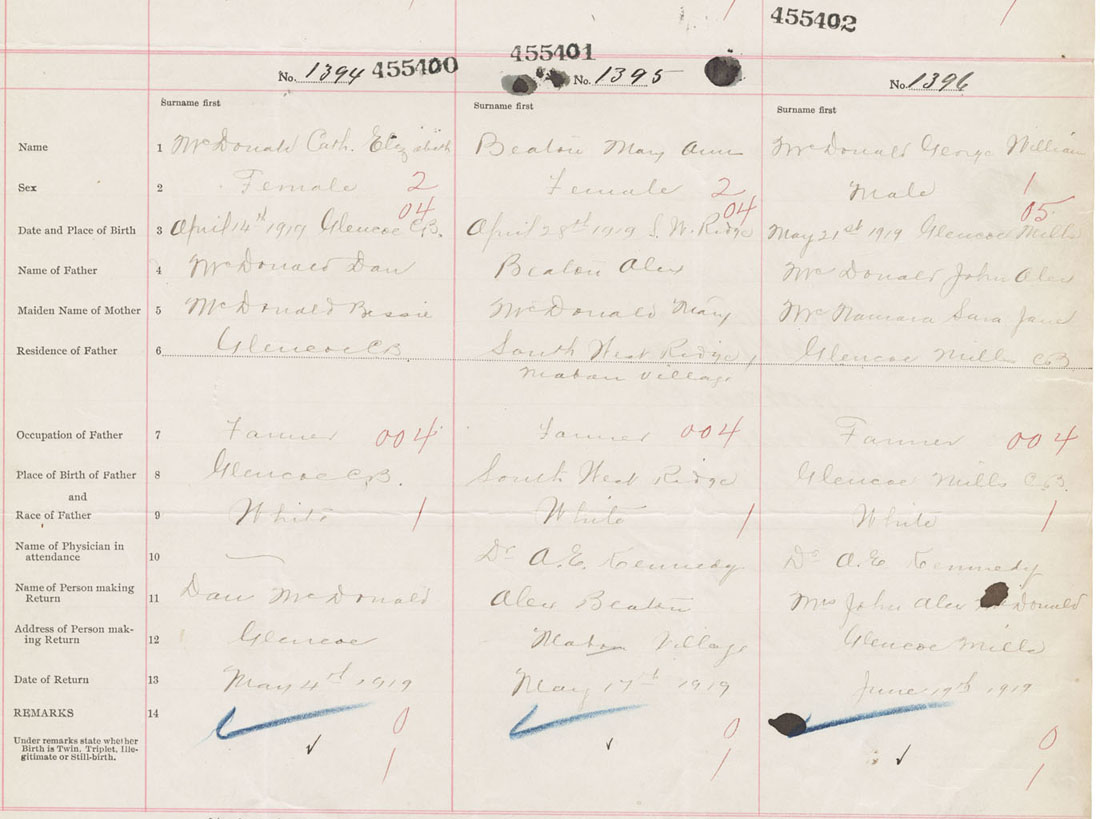 455402
455401
No. 1394 455400 No. 1395 No. 1396
Surname first Surname first Surname first
Name 1 McDonald Cath. Elizabeth Beaton Mary Ann McDonald George William
Sex 2 Female 2 Female 2 Male 1
04 04 05
Date and Place of Birth 3 April 14th 1919 Glencoe C.B. April 28th 1919 S. W. Ridge May 21st 1919 Glencoe Mills
Name of Father 4 McDonald Dan Beaton Alex McDonald John Alex
Maiden Name of Mother 5 McDonald Bessie McDonald Mary McNamara Sara Jane
Residence of Father 6 Glencoe CB South West Ridge, Glencoe Mills CB
Mabou Village
Occupation of Father 7 Farmer 004 Farmer 004 Farmer 004
Place of Birth of Father 8 Glencoe C.B. South West Ridge Glencoe Mills C.B.
and
Race of Father 9 White 1 White 1 White 1
Name of Physician in
attendance 10 — Dr A.E. Kennedy Dr A.E. Kennedy
Name of Person making
Return 11 Dan McDonald Alex Beaton Mrs John Alex McDonald
Address of Person mak-
ing Return 12 Glencoe Mabou Village Glencoe Mills
Date of Return 13 May 4th 1919 May 17th 1919 June 19th 1919
REMARKS 14 0 0 0
Under remarks state whether
Birth is Twin, Triplet, Ille-
gitimate or Still-birth. ✓ 1 ✓ 1 ✓ 1